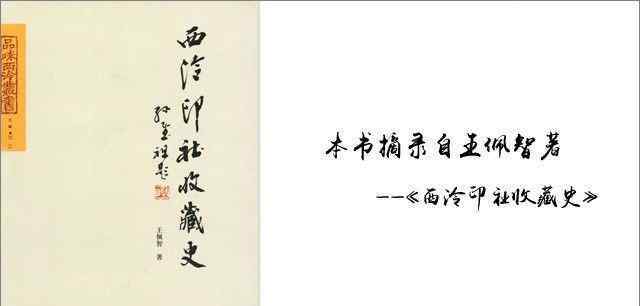 品味西泠叢書
西泠印社收藏史
孙慰祖题
王佩智 著
本书摘录自王佩智著
--《西泠印社收藏史》